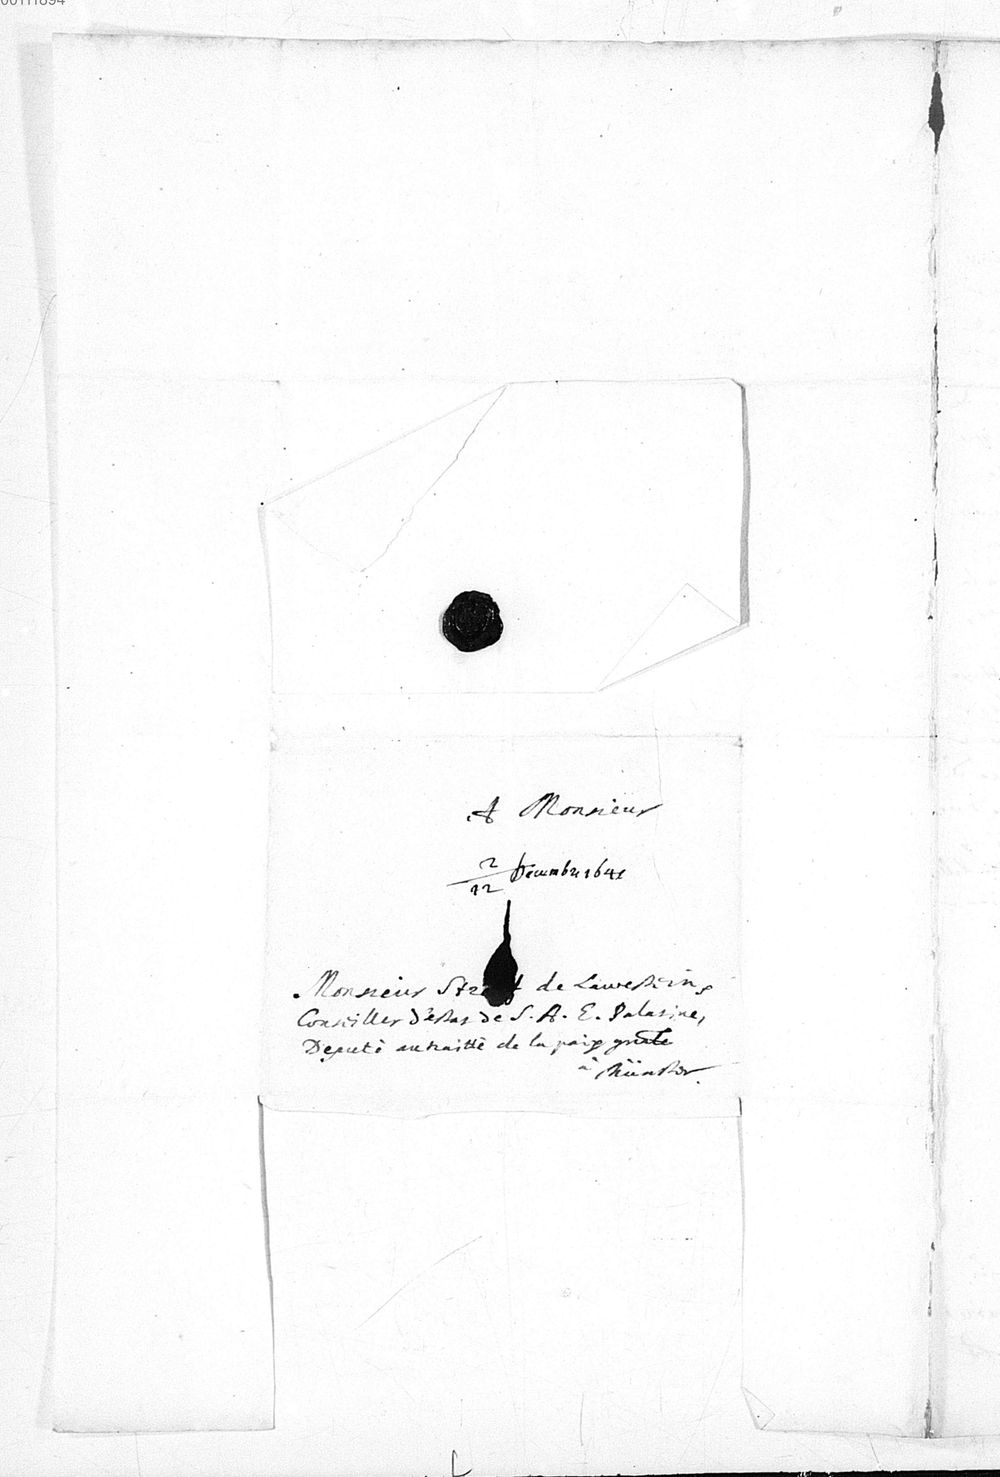 00111894
A Monsieur
2/12 Decembr 1641
Monsieur de
Conseiller d'estat de S. A. E. Palatine,
Deputé au traitté de la paix gnãle
à Münster.